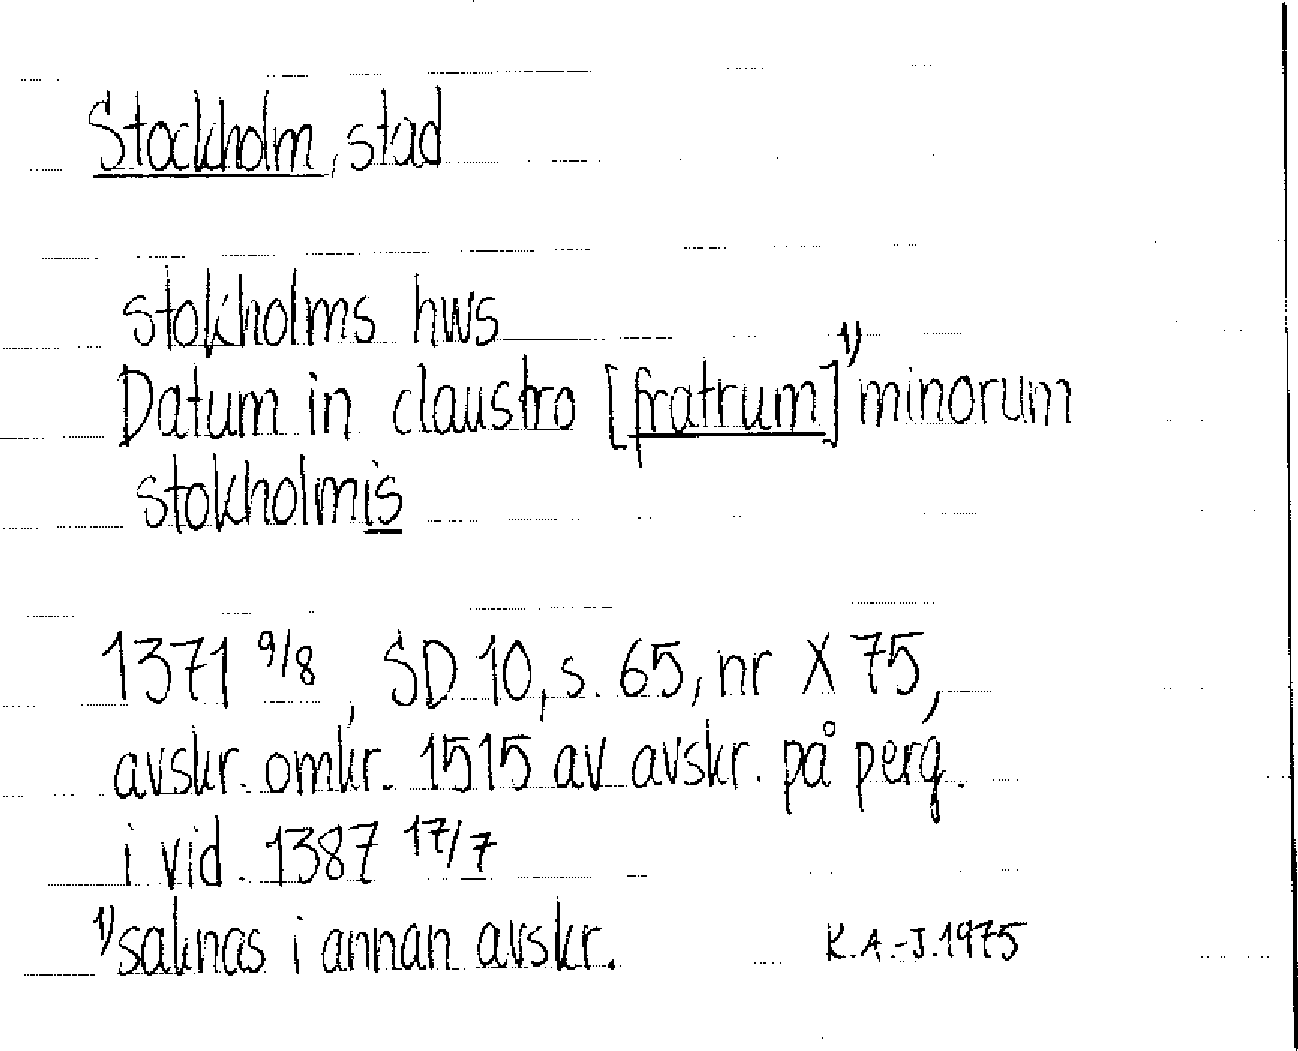 Stockholm, stad
stokholms hws
Datum in claustro [fratrum]¹⁾ minorum
stokholmis
1371 9/8, SD 10, s. 65, nr X 75,
avskr. omkr. 1515 av avskr. på perg.
i vid. 1387 17/7
¹⁾ saknas i annan avskr. K.A.-J. 1975